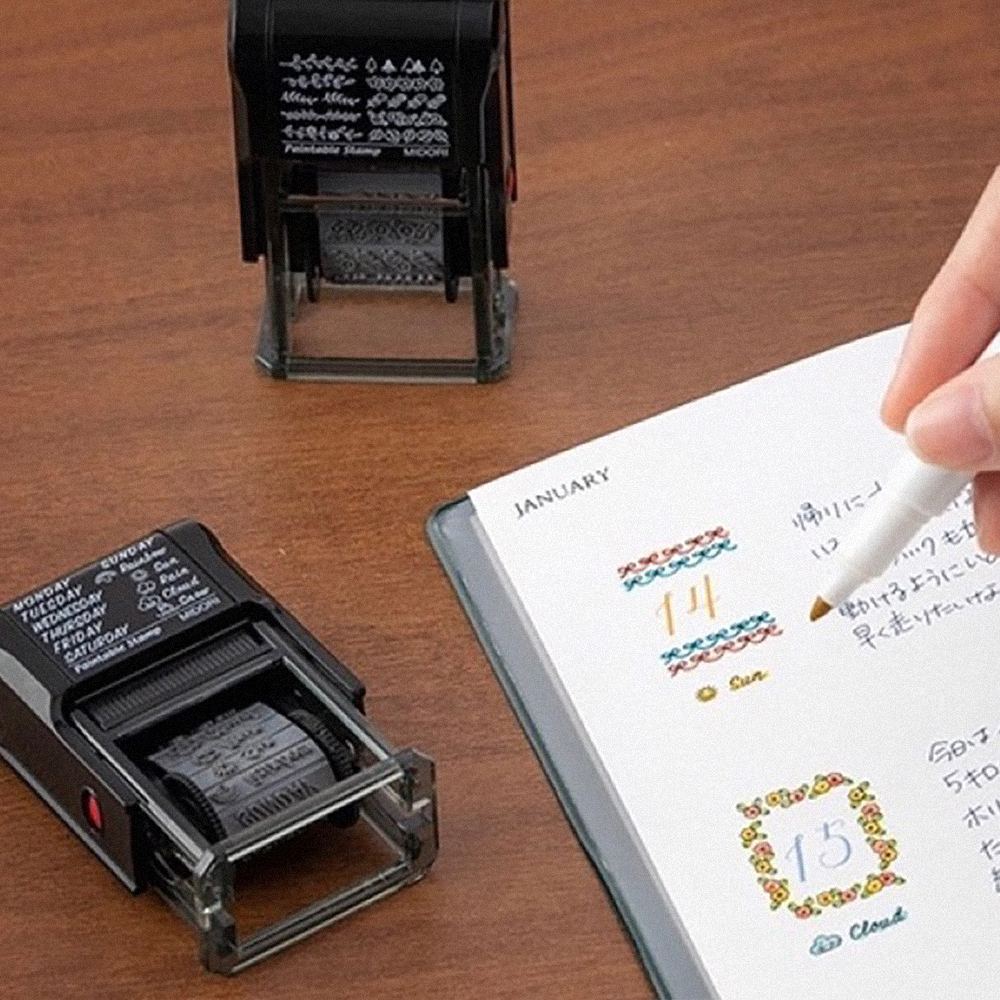 Paintable Stamp MIDORI
MONDAY SUNDAY
TUESDAY Rainbow
WEDNESDAY Sun
THURSDAY Rain
FRIDAY Cloud
SATURDAY Snow
Paintable Stamp MIDORI
JANUARY
14
Sun
帰りに
動けるように
早く走りたいけ
15
Cloud
今日は
5キロ